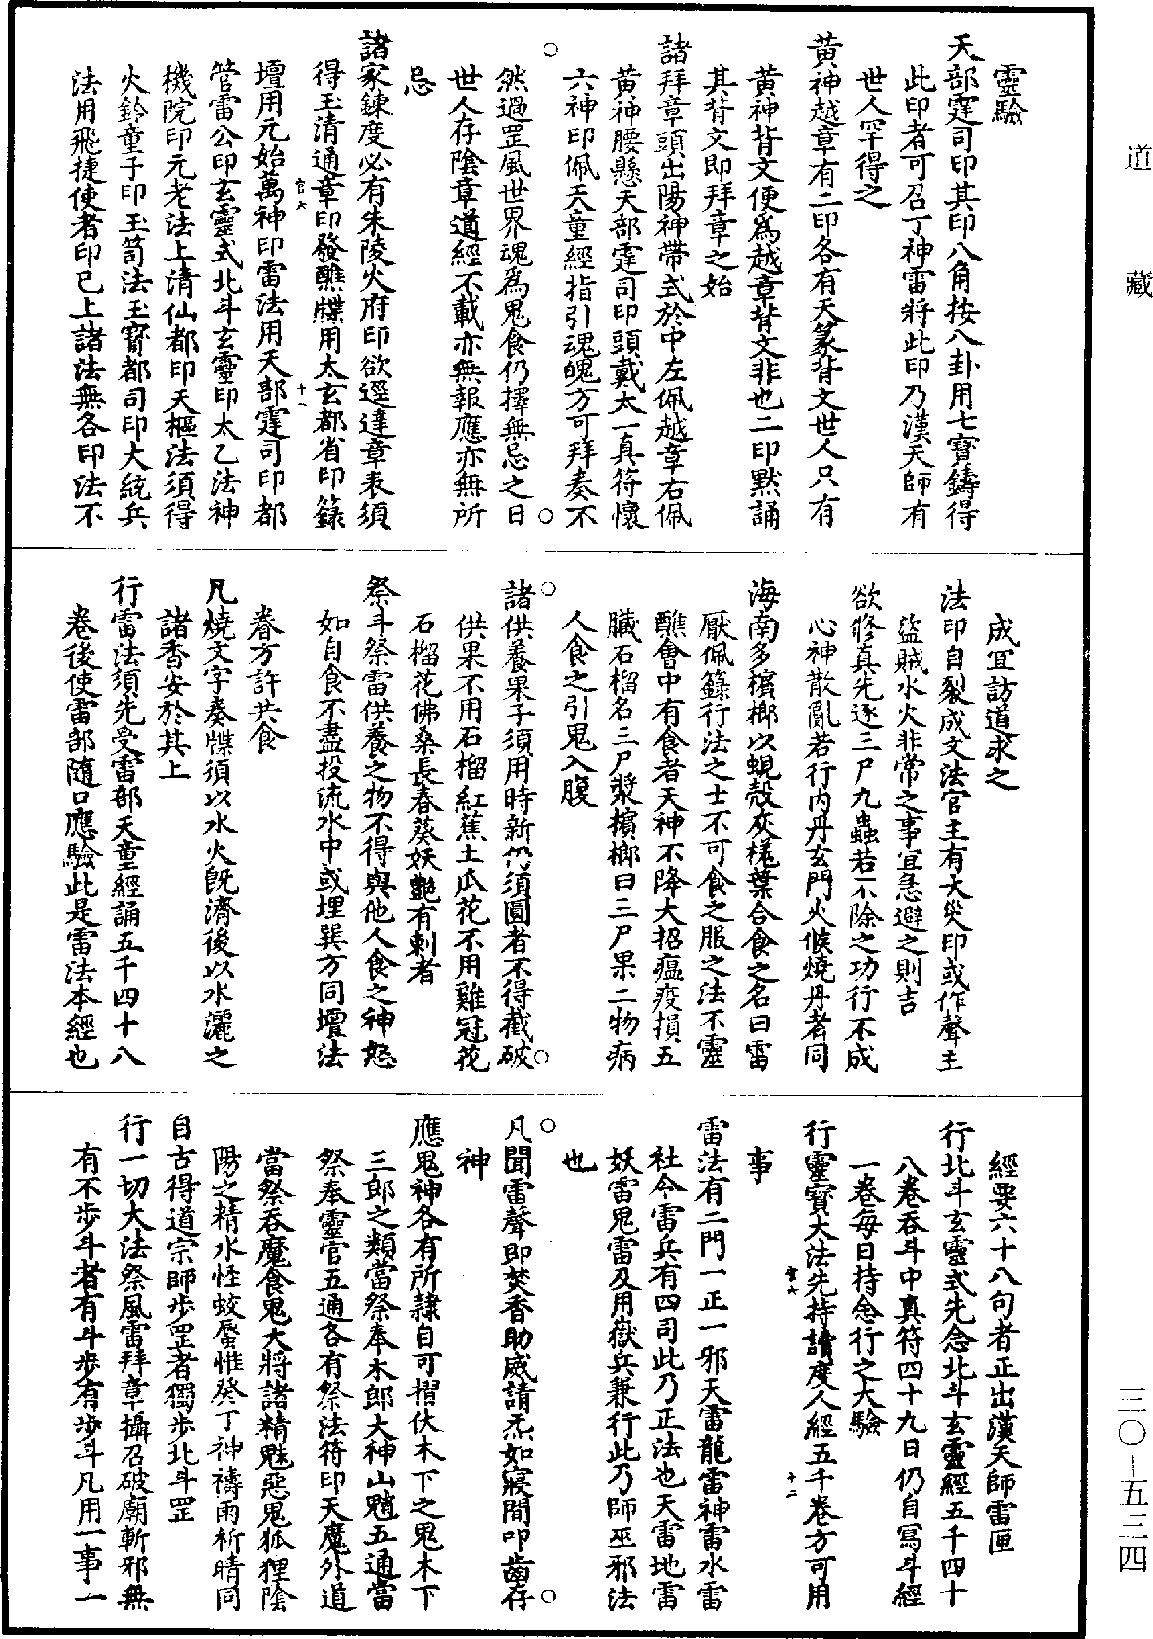 道藏
三〇—五三四
靈驗
天部霆司印其印八角按八卦用七寶鑄得
此印者可召丁神雷將此印乃漢天師有
世人罕得之
黃神越章有二印各有天篆背文世人只有
黃神背文便爲越章背文非也二印默誦
其背文即拜章之始
諸拜章頭出陽神帶式於中左佩越章右佩
黃神腰懸天部霆司印頭戴太一真符懷
六神印佩天童經指引魂魄方可拜奏不
然過罡風世界魂爲鬼食仍擇無忌之日
世人存陰章道經不載亦無報應亦無所
忌
諸家鍊度必有朱陵火府印欲逕達章表須
得玉清通章印發醮牒用太玄都省印籙
壇用元始萬神印雷法用天部霆司印都
管雷公印玄靈式北斗玄靈印太乙法神
機院印元老法上清仙都印天樞法須得
火鈴童子印玉笥法玉寶都司印大統兵
法用飛捷使者印已上諸法無各印法不
成宜訪道求之
法印自裂成文法官主有大災印或作聲主
盜賊水火非常之事宜急避之則吉
欲修真先逐三尸九蟲若不除之功行不成
心神散亂若行内丹玄門火候燒丹者同
海南多檳榔以蜆殼灰蔞葉合食之名曰雷
厭佩籙行法之士不可食之服之法不靈
醮會中有食者天神不降大招瘟疫損五
臟石榴名三尸漿檳榔曰三尸果二物病
人食之引鬼入腹
諸供養果子須用時新仍須圓者不得截破
供果不用石榴紅蕉土瓜花不用雞冠花
石榴花佛桑長春葵妖艷有刺者
祭斗祭雷供養之物不得與他人食之神怒
如自食不盡投流水中或埋巽方同壇法
眷方許共食
凡燒文字奏牒須以水火旣濟後以水灑之
諸香安於其上
行雷法須先受雷部天童經誦五千四十八
卷後使雷部隨口應驗此是雷法本經也
經要六十八句者正出漢天師雷匣
行北斗玄靈式先念北斗玄靈經五千四十
八卷吞斗中真符四十九日仍自寫斗經
一卷每日持念行之大驗
行靈寶大法先持讀度人經五千卷方可用
事
雷法有二門一正一邪天雷龍雷神雷水雷
社令雷兵有四司此乃正法也天雷地雷
妖雷鬼雷及用嶽兵兼行此乃師巫邪法
也
凡聞雷聲即焚香助威請炁如寢間叩齒存
神
應鬼神各有所隷自可摺伏木下之鬼木下
三郎之類當祭奉木郎大神山魈五通當
祭奉靈官五通各有祭法符印天魔外道
當祭吞魔食鬼大將諸精魅惡鬼狐狸陰
陽之精水怪蛟蜃惟癸丁神禱雨祈晴同
自古得道宗師步罡者獨步北斗罡
行一切大法祭風雷拜章攝召破廟斬邪無
有不步斗者有斗步有步斗凡用一事一